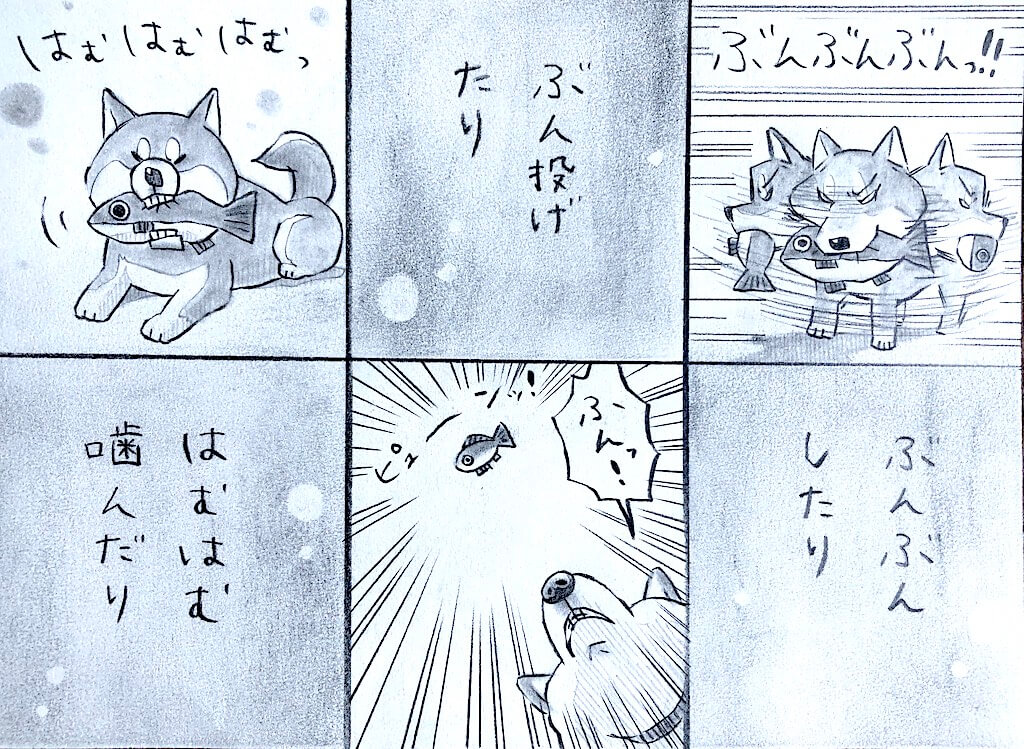 ぶんぶんぶんっ!!
ぶんぶん
したり
ぶん投げ
たり
ぶんっ!
ピュ
ーンッ!
はむはむはむっ
はむはむ
噛んだり